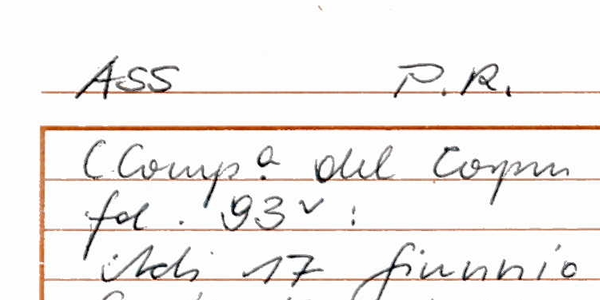 ASS P.R.
(Comp.a del Corpus
fol. 93v:
Adi 17 giunnio